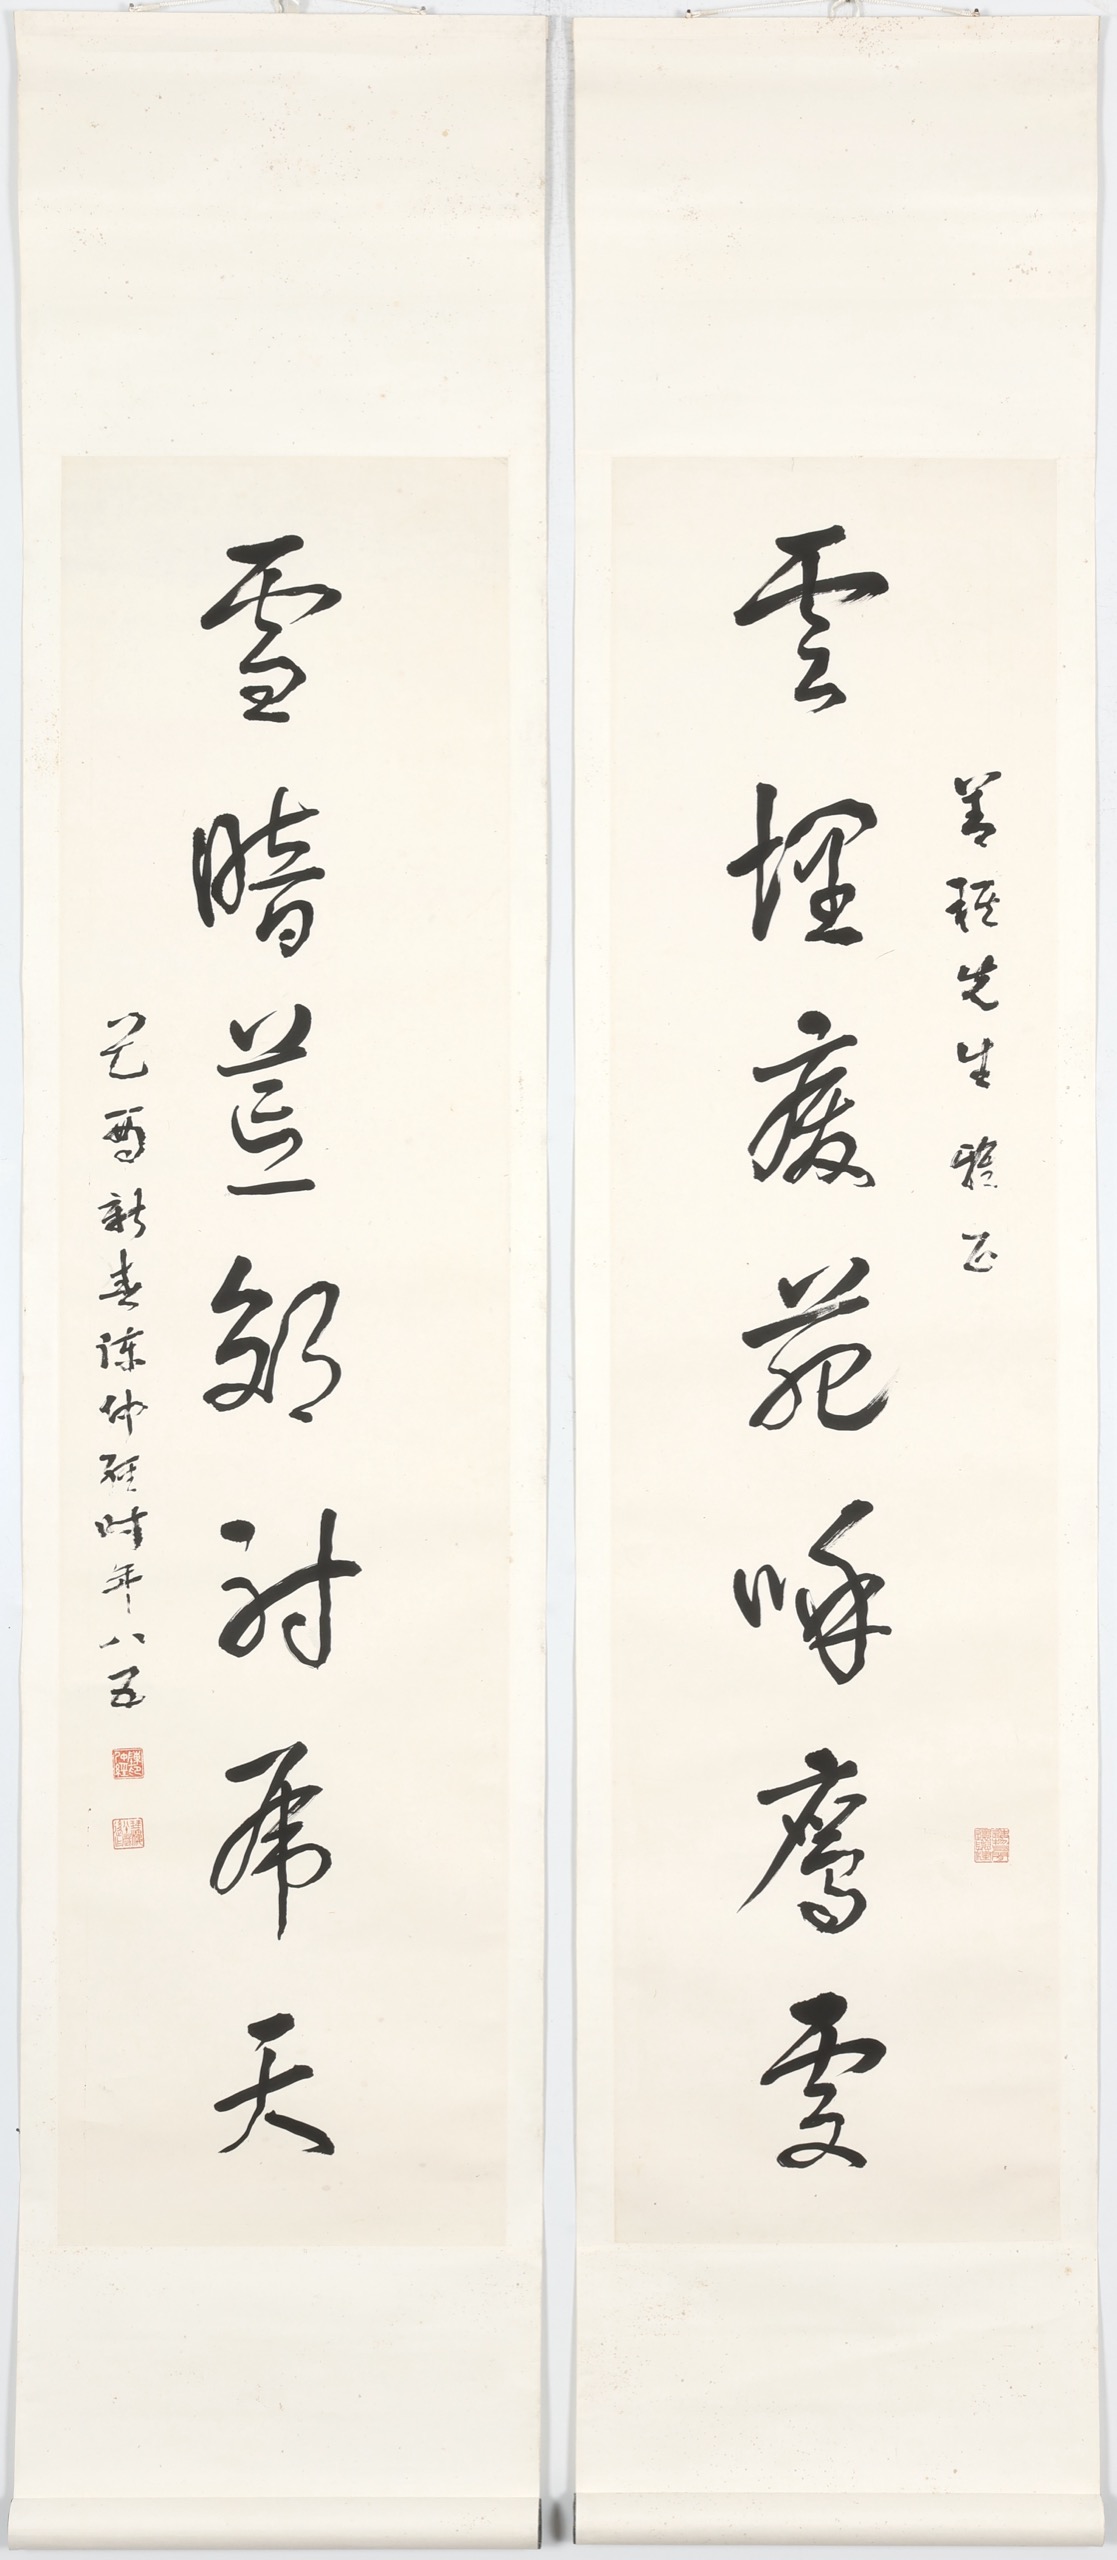 善穉先生雅正
雲埋廢苑呼鷹處
雪暗荒郊射虎天
乙酉新春陳仲經時年八五
陳仲經